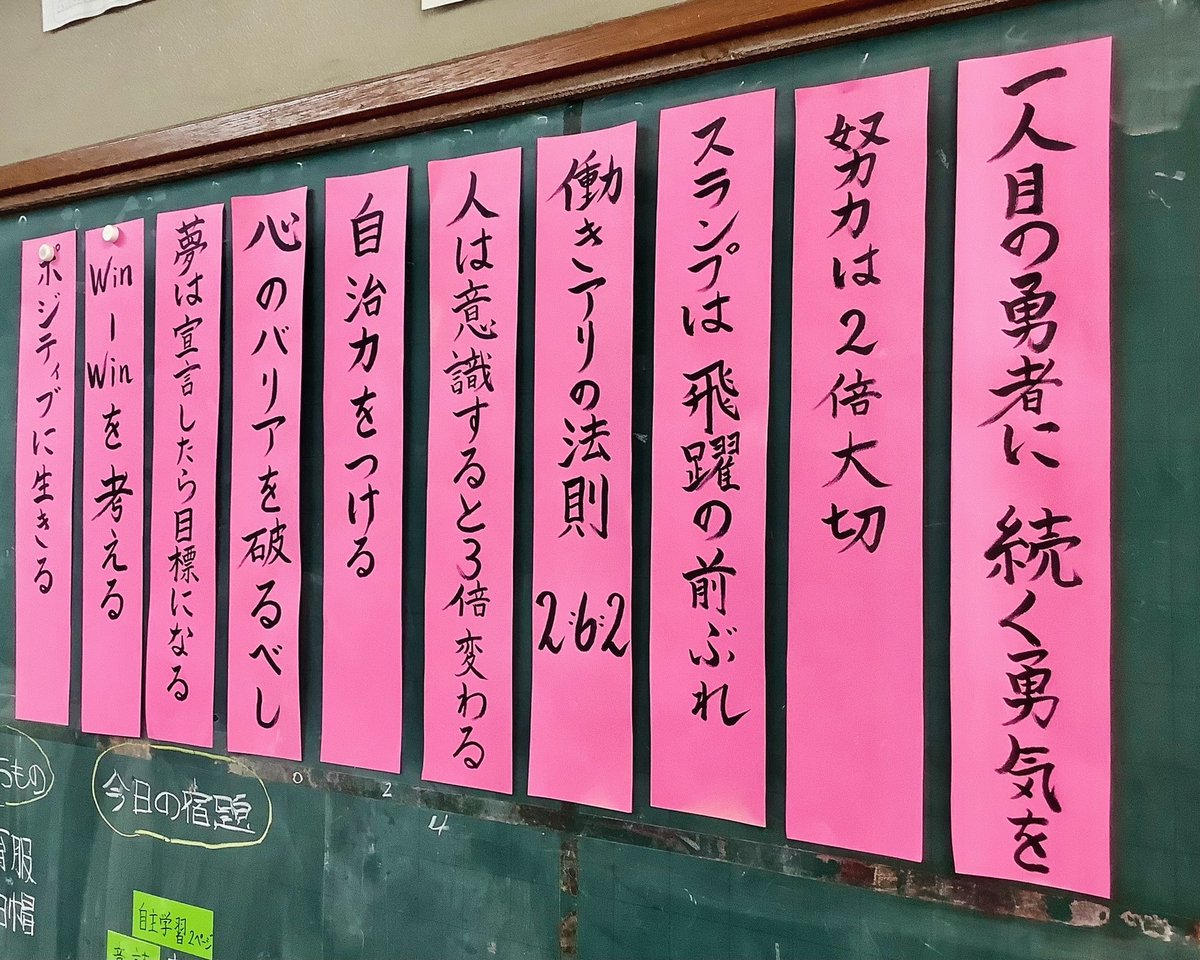 一人目の勇者に続く勇気を
努力は2倍大切
スランプは飛躍の前ぶれ
働きアリの法則 2:6:2
人は意識すると3倍変わる
自治力をつける
心のバリアを破るべし
夢は宣言したら目標になる
Win-Winを考える
ポジティブに生きる
今日の宿題
自主学習2ページ
0
2
4
もの
服
帽